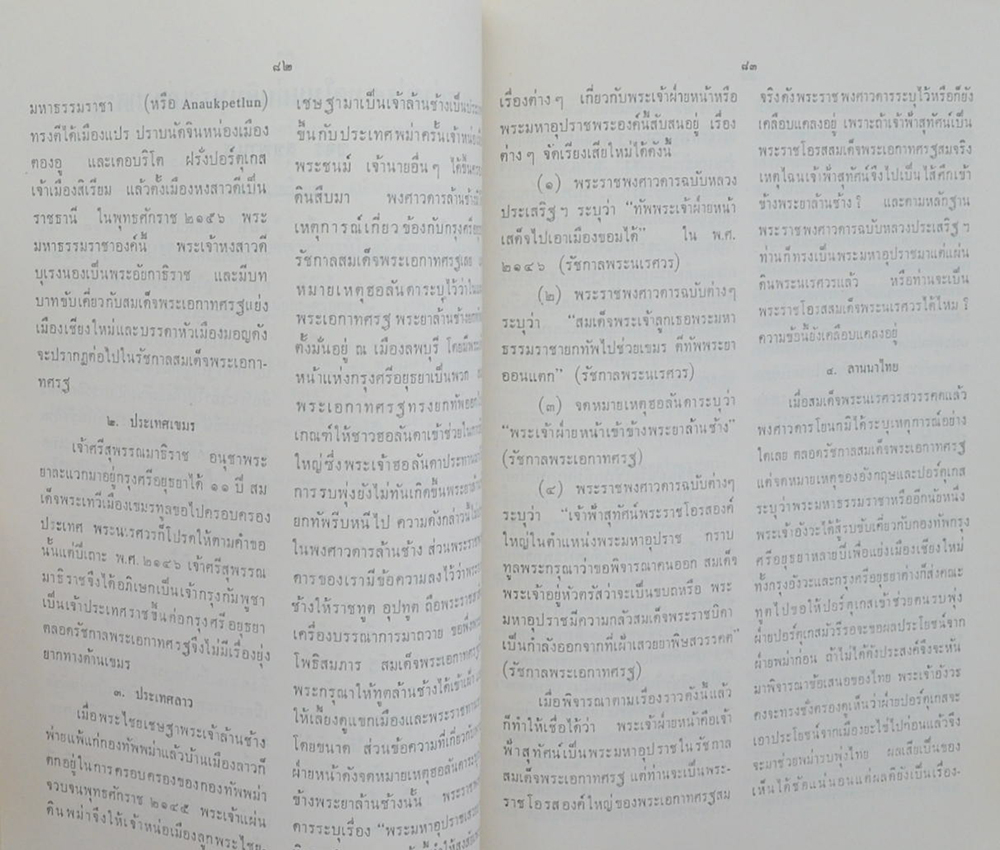 ๘๒
มหาธรรมราชา (หรือ Anaukpetlun)
ทรงตีได้เมืองแปร ปราบนัดจินหน่องเมือง
ตองอู และเดอบริโต ฝรั่งปอร์ตุเกส
เจ้าเมืองสิเรียม แล้วตั้งเมืองหงสาวดีเป็น
ราชธานี ในพุทธศักราช ๒๑๕๖ พระ
มหาธรรมราชาองค์นี้ พระเจ้าหงสาวดี
บุเรงนองเป็นพระอัยกาธิราช และมีบท
บาทขับเคี่ยวกับสมเด็จพระเอกาทศรฐแย่ง
เมืองเชียงใหม่และบรรดาหัวเมืองมอญดัง
จะปรากฏต่อไปในรัชกาลสมเด็จพระเอกา-
ทศรฐ
๒. ประเทศเขมร
เจ้าศรีสุพรรณมาธิราช อนุชาพระ
ยาละแวกมาอยู่กรุงศรีอยุธยาได้ ๑๑ ปี สม
เด็จพระเทวีเมืองเขมรทูลขอไปครอบครอง
ประเทศ พระนเรศวรก็โปรดให้ตามคำขอ
นั้นแต่ปีเถาะ พ.ศ. ๒๑๔๖ เจ้าศรีสุพรรณ
มาธิราชจึงได้อภิเษกเป็นเจ้ากรุงกัมพูชา
เป็นเจ้าประเทศราชขึ้นต่อกรุงศรีอยุธยา
ตลอดรัชกาลพระเอกาทศรฐจึงไม่มีเรื่องยุ่ง
ยากทางด้านเขมร
๓. ประเทศลาว
เมื่อพระไชยเชษฐาพระเจ้าล้านช้าง
พ่ายแพ้แก่กองทัพพม่าแล้วบ้านเมืองลาวก็
ตกอยู่ในการครอบครองของกองทัพพม่า
จวบจนพุทธศักราช ๒๑๔๕ พระเจ้าแผ่น
ดินพม่าจึงให้เจ้าหน่อเมืองลูกพระไชย-
เชษฐามาเป็นเจ้าล้านช้างเป็น
ขึ้นกับประเทศพม่าครั้นเจ้าหน่อ
พระชนม์ เจ้านายอื่น ๆ ได้
ดินสืบมา พงศาวดารล้านช้าง
เหตุการณ์เกี่ยวข้องกับกรุงศรี
รัชกาลสมเด็จพระเอกาทศรฐ
หมายเหตุฮอลันดาระบุไว้ว่า
พระเอกาทศรฐ พระยาล้านช้างยก
ตั้งมั่นอยู่ ณ เมืองลพบุรี โดยมี
หน้าแห่งกรุงศรีอยุธยาเป็นพวก
พระเอกาทศรฐทรงยกทัพออก
เกณฑ์ให้ชาวฮอลันดาเข้าช่วย
ใหญ่ซึ่งพระเจ้าฮอลันดาประทาน
การรบพุ่งยังไม่ทันเกิดขึ้นพระยา
ยกทัพรีบหนีไป ความดังกล่าวนี้
ในพงศาวดารล้านช้าง ส่วนพระราช
การของเรามีข้อความลงไว้ว่า
ช้างให้ราชทูต อุปทูต ถือพระราช
เครื่องบรรณาการมาถวาย ขอพึ่ง
โพธิสมภาร สมเด็จพระเอกาทศรฐ
พระกรุณาให้ทูตล้านช้างได้เข้าเฝ้า
ให้เลี้ยงดูแขกเมืองและพระราชทาน
โดยขนาด ส่วนข้อความที่เกี่ยวกับ
ฝ่ายหน้าดังจดหมายเหตุฮอลันดาระบุ
ข้างพระยาล้านช้างนั้น พระราช
ดารระบุเรื่อง “พระมหาอุปราช
๘๓
เรื่องต่าง ๆ เกี่ยวกับพระเจ้าฝ่ายหน้าหรือ
พระมหาอุปราชพระองค์นี้สับสนอยู่ เรื่อง
ต่าง ๆ จัดเรียงเสียใหม่ได้ดังนี้
(๑) พระราชพงศาวดารฉบับหลวง
ประเสริฐ ฯ ระบุว่า “ทัพพระเจ้าฝ่ายหน้า
เสด็จไปเอาเมืองขอมได้” ใน พ.ศ.
๒๑๔๖ (รัชกาลพระนเรศวร)
(๒) พระราชพงศาวดารฉบับต่าง ๆ
ระบุว่า “สมเด็จพระเจ้าลูกเธอพระมหา
ธรรมราชายกทัพไปช่วยเขมร ตีทัพพระยา
ออนแตก” (รัชกาลพระนเรศวร)
(๓) จดหมายเหตุฮอลันดาระบุว่า
“พระเจ้าฝ่ายหน้าเข้าข้างพระยาล้านช้าง”
(รัชกาลพระเอกาทศรฐ)
(๔) พระราชพงศาวดารฉบับต่างๆ
ระบุว่า “เจ้าฟ้าสุทัศน์พระราชโอรสองค์
ใหญ่ในตำแหน่งพระมหาอุปราช กราบ
ทูลพระกรุณาว่าขอพิจารณาคนออก สมเด็จ
พระเจ้าอยู่หัวตรัสว่าจะเป็นขบถหรือ พระ
มหาอุปราชมีความกลัวสมเด็จพระราชบิดา
เป็นกำลังออกจากที่เฝ้าเสวยยาพิษสวรรคต”
(รัชกาลพระเอกาทศรฐ)
เมื่อพิจารณาตามเรื่องราวดังนี้แล้ว
ก็ทำให้เชื่อได้ว่า พระเจ้าฝ่ายหน้าคือเจ้า
ฟ้าสุทัศน์เป็นพระมหาอุปราชในรัชกาล
สมเด็จพระเอกาทศรฐ แต่ท่านจะเป็นพระ-
ราชโอรสองค์ใหญ่ของพระเอกาทศรฐสม
จริงดังพระราชพงศาวดารระบุไว้หรือก็ยัง
เคลือบแคลงอยู่ เพราะถ้าเจ้าฟ้าสุทัศน์เป็น
พระราชโอรสสมเด็จพระเอกาทศรฐสมจริง
เหตุไฉนเจ้าฟ้าสุทัศน์จึงไปเป็นไส้ศึกเข้า
ข้างพระยาล้านช้าง ? และตามหลักฐาน
พระราชพงศาวดารฉบับหลวงประเสริฐ ฯ
ท่านก็ทรงเป็นพระมหาอุปราชมาแต่แผ่น
ดินพระนเรศวรแล้ว หรือท่านจะเป็น
พระราชโอรสสมเด็จพระนเรศวรได้ไหม ?
ความข้อนี้ยังเคลือบแคลงอยู่
๔. ลานนาไทย
เมื่อสมเด็จพระนเรศวรสวรรคตแล้ว
พงศาวดารโยนกมิได้ระบุเหตุการณ์อย่าง
ใดเลย ตลอดรัชกาลสมเด็จพระเอกาทศรฐ
แต่จดหมายเหตุของอังกฤษและปอร์ตุเกส
ระบุว่าพระมหาธรรมราชาหรืออีกนัยหนึ่ง
พระเจ้าอังวะได้สู้รบขับเคี่ยวกับกองทัพกรุง
ศรีอยุธยาหลายปีเพื่อแย่งเมืองเชียงใหม่
ทั้งกรุงอังวะและกรุงศรีอยุธยาต่างก็ส่งคณะ
ทูตไปขอให้ปอร์ตุเกสเข้าช่วยตนรบพุ่ง
ฝ่ายปอร์ตุเกสมัวรีรอจะขอผลประโยชน์จาก
ฝ่ายพม่าก่อน ถ้าไม่ได้ดังประสงค์จึงจะหัน
มาพิจารณาข้อเสนอของไทย พระเจ้าอังวะ
คงจะทรงชั่งตรองดูเห็นว่าฝ่ายปอร์ตุเกสจะ
เอาประโยชน์จากเมืองยะไข่ไปก่อนแล้วจึง
จะมาช่วยพม่ารบพุ่งไทย ผลเสียเป็นของ
เห็นได้ชัดแน่นอนแต่ผลดียังเป็นเรื่อง-